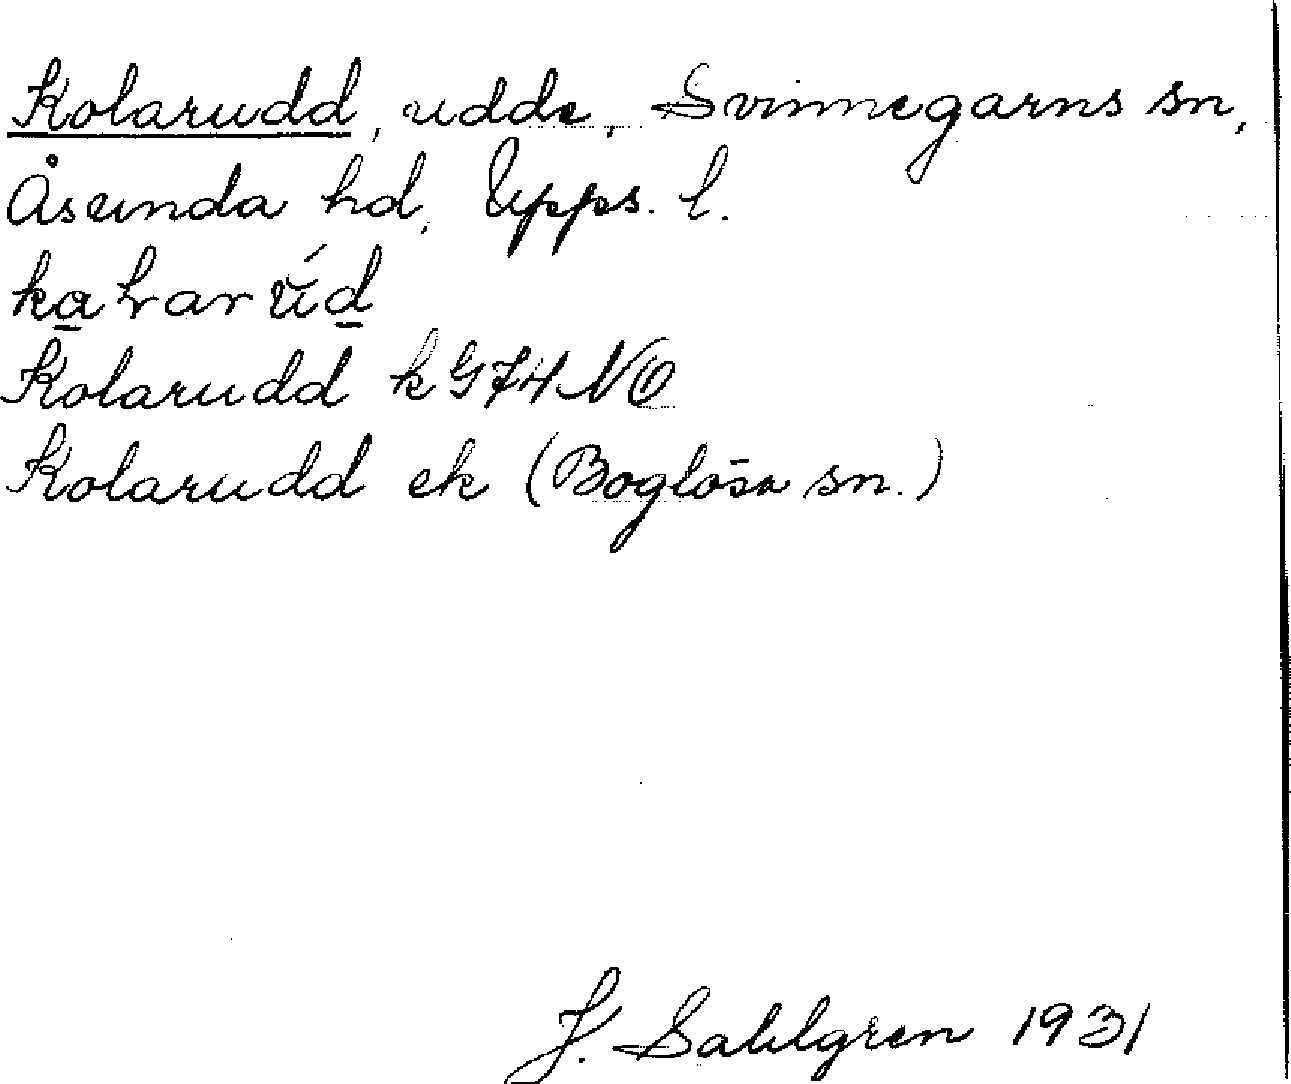 Kolarudd, udde, Svinnegarns sn,
Åsunda hd, Upps. l.
Kolarudd k G74 NO
Kolarudd ek (Boglösa sn.)
J. Sahlgren 1931